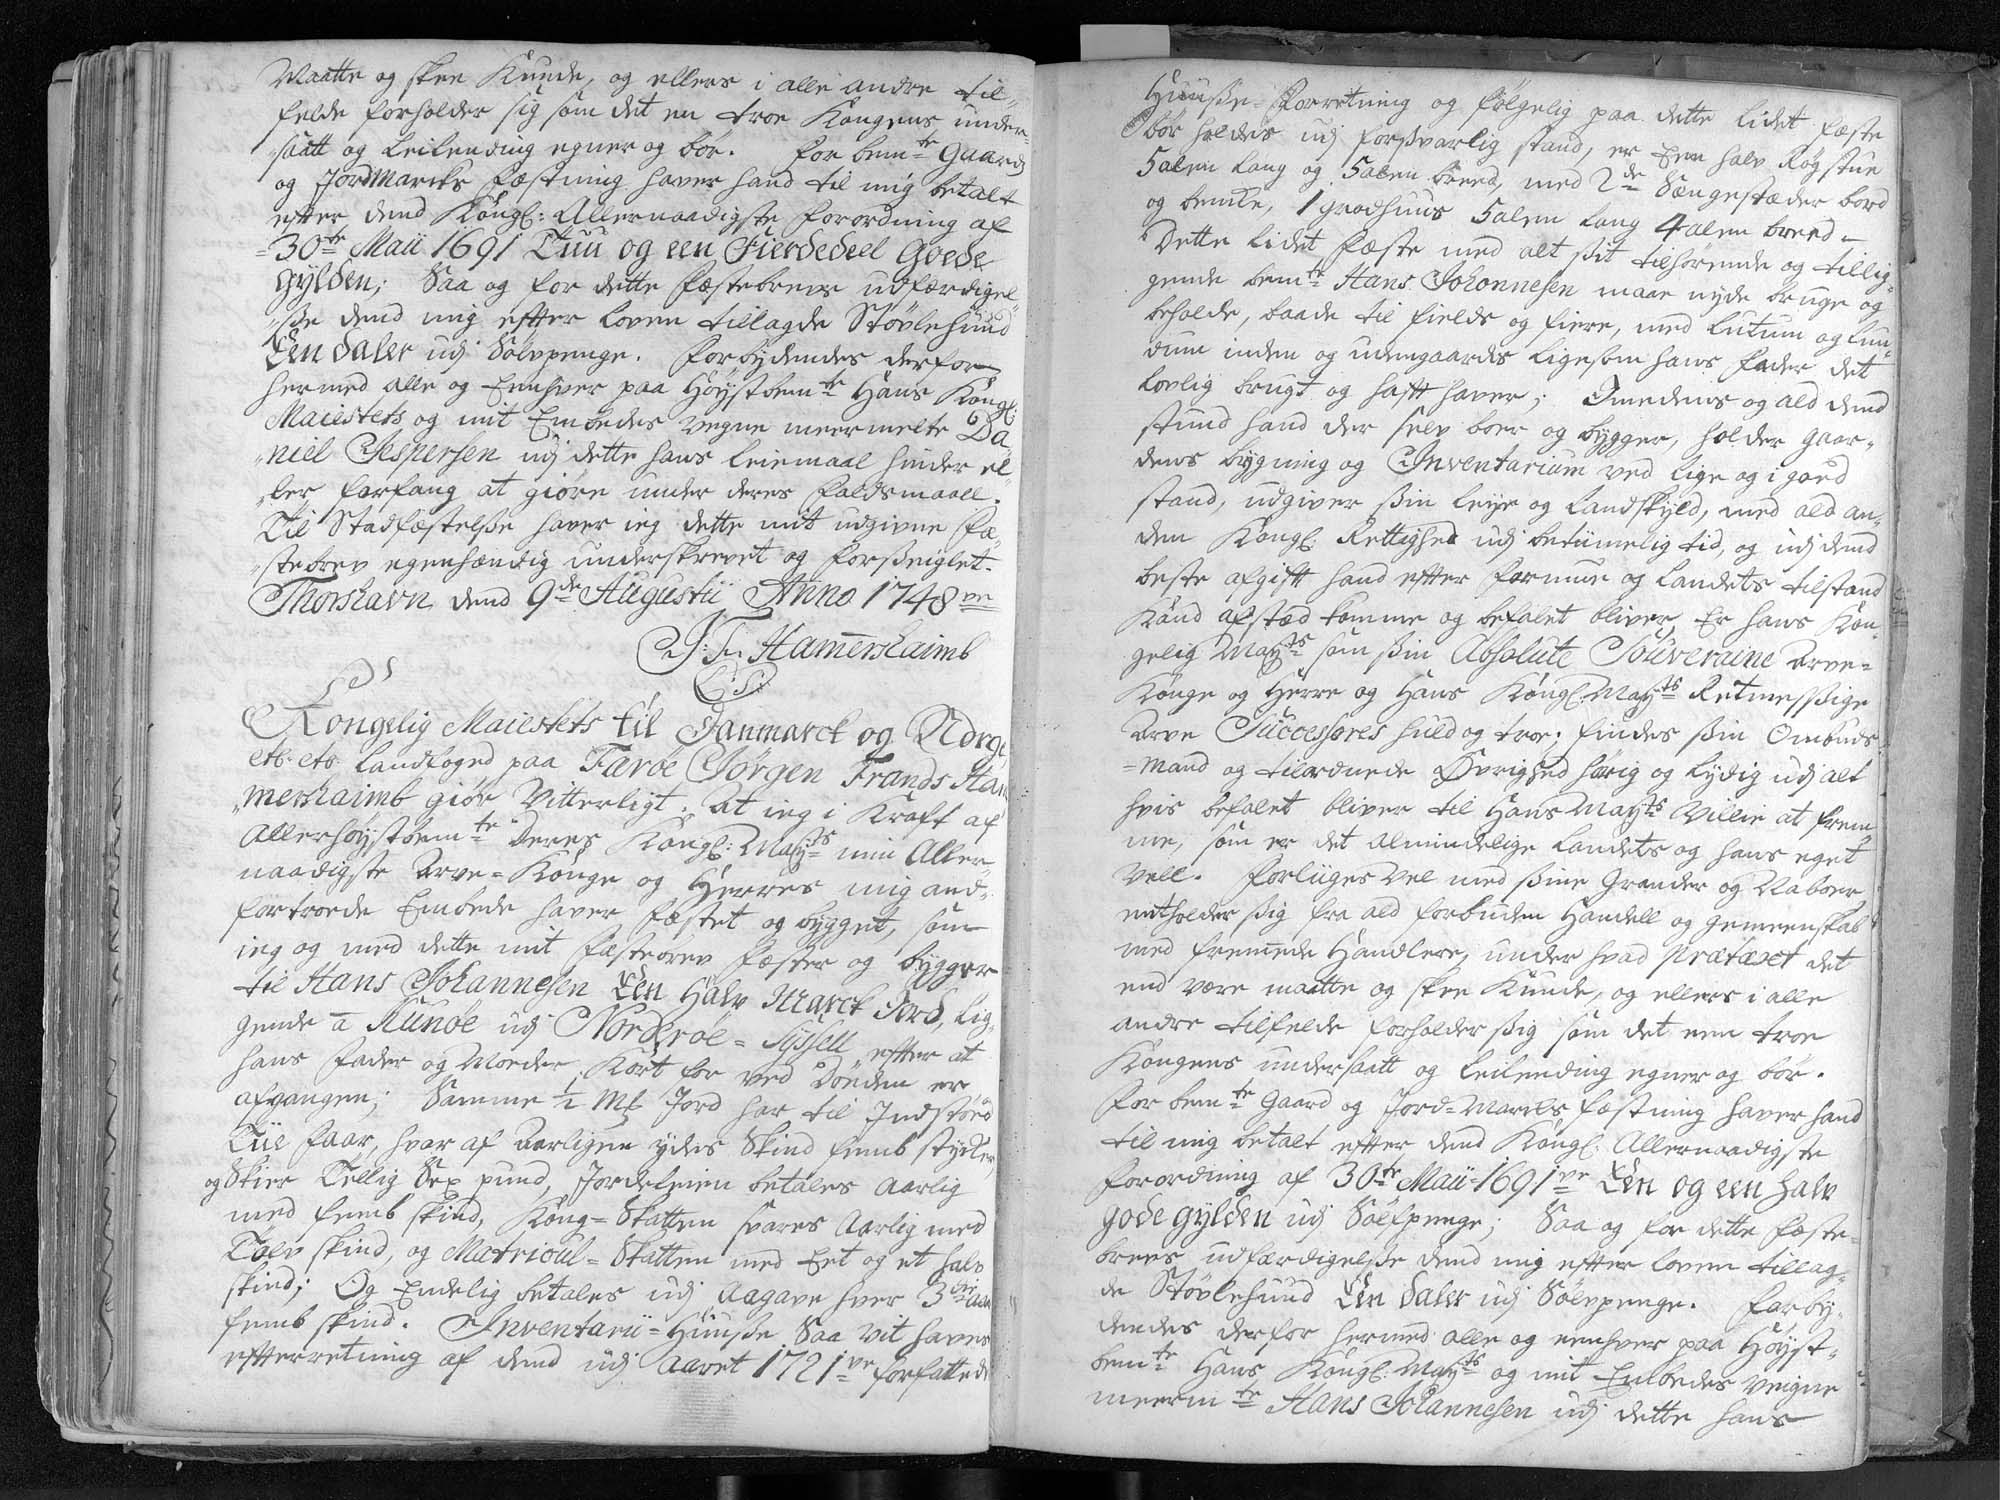 Maatte og skee Kunde, og ellers i alle andre til-
felde forholder sig som det en troe Kongens under-
saatt og Leilending egner og bør. For bemte Gaards
og Jordmarcks fæstning haver hand til mig betalt
efter dend Kongl: Allernaadigste forordning af
30te Maii 1691 Tuu og een Fierdedeel Goede
gylden; Saa og for dette fæstebrevs udfærdigel-
sße dend mig efter Loven tillagde Støvlehuud
Een daler udj Sölvpenge. Forbydendes derfor
hermed alle og Eenhver paa Høystbemte Hans Kongl:
Maiestets og mit Embedes Vegne meermelte Da-
niel Jespersen udj dette hans Leiemaal hinder el-
ler forfang at giøre under deres faldsmaall.
Til Stadfæstelsße haver ieg dette mit udgivne Fæ-
stebrev egenhændig underskrevet og forßeiglet.
Thorshavn dend 9de Augustii Anno 1748ve
J: F: Hamershaimb
L: S:
Kongelig Maiestets til Danmarck og Norge
etc: etc: Landfoged paa Færøe Jørgen Frands Ham-
mershaimb giør Vitterligt. At ieg i Kraft af
Allerhøystbemte Deres Kongl: Mayts min Aller-
naadigste Arve-Konge og Herres mig and-
fortroede Embede haver fæstet og bygget, som
ieg og med dette mit fæstebrev fæster og bygger
til Hans Johannesen Een Halv Marck Jord, Lig-
gende a Kunøe udj Norderøe-Syssell efter at
hans Fader og Moeder Kort for ved Døeden er
afgangen; Samme 1/2 Mk Jord har til Indstøed
Tiie faar, hvor af Aarligen ydes Skind femb stycker,
og Skier Tellig Sex pund, Jordeleien betales Aarlig
med femb skind, Kong-Skatten svares Aarlig med
Tølv skind, og Matricul-Skatten med Eet og et halv
skind; Og Endelig betales udj Aagave hver 3die Aar
femb skind. Inventarii-Huusße Saa vit haves
efterretning af dend udj Aaret 1721ve forfattede
Huusße-Forretning og følgelig paa dette lidet fæste
bør holdes udj forsvarlig stand, er Een halv Røgstue
5 alen lang og 5 alen breed, med 2de Sængestæder bord
og bencke, 1 grodhuus 5 alen lang 4 alen breed
Dette lidet fæste med alt sßit tilhørende og tillig-
gende bemte Hans Johonnesen maae nyde bruge og
beholde, baade til fields og fiere, med lutum og lun-
dum inden og udengaards ligesom hans fader det
lovlig brugt og hafft haver; Imedens og ald dend
stund hand der selv boer og bygger, holder gaar-
dens bygning og Inventarium ved lige og i goed
stand, udgiver sßin leye og landskyld, med ald an-
den Kongl: Rettighed udj betiimelig tid, og udj dend
beste afgift hand efter formue og Landets tilstand
Kand afsted komme og befalet bliver, Er hans Kon-
gelig Mayts som sßin Absolute Souveraine Arve-
Konge og Herre og Hans Kongl: Mayts Retmessßige
Arve Successores huld og troe; findes sßin Ombuds-
mand og tilordnede Øvrighed hørig og lydig udj alt
hvis befalet bliver til Hans Mayts Villie at frem-
me, som er det Almindelige Landets og hans eget
Vell. Forliiges vel med sßine Grander og Naboer
entholder sßig fra ald forbuden Handell og gemeenskab
med fremmede Handlere, under hvad Prætæxt det
end være maatte og skee Kunde, og ellers i alle
andre tilfelde forholder sßig som det een troe
Kongens undersaatt og Leilending egner og bør.
For bemte Gaard og Jord-Marcks fæstning haver hand
til mig betalt efter dend Kongl: Allernaadigste
Forordning af 30te Maii 1691ve Een og een halv
gode gylden udj Sölfpenge; Saa og for dette fæste-
brevs udfærdigelsße dend mig efter loven tillag-
de Støvlehuud Een daler udj Sölvpenge. Forby-
dendes derfor hermed alle og eenhver paa Høyst-
bemte Hans Kongl: Mayts og mit Embedes Veigne
meermte Hans Johannesen udj dette hans